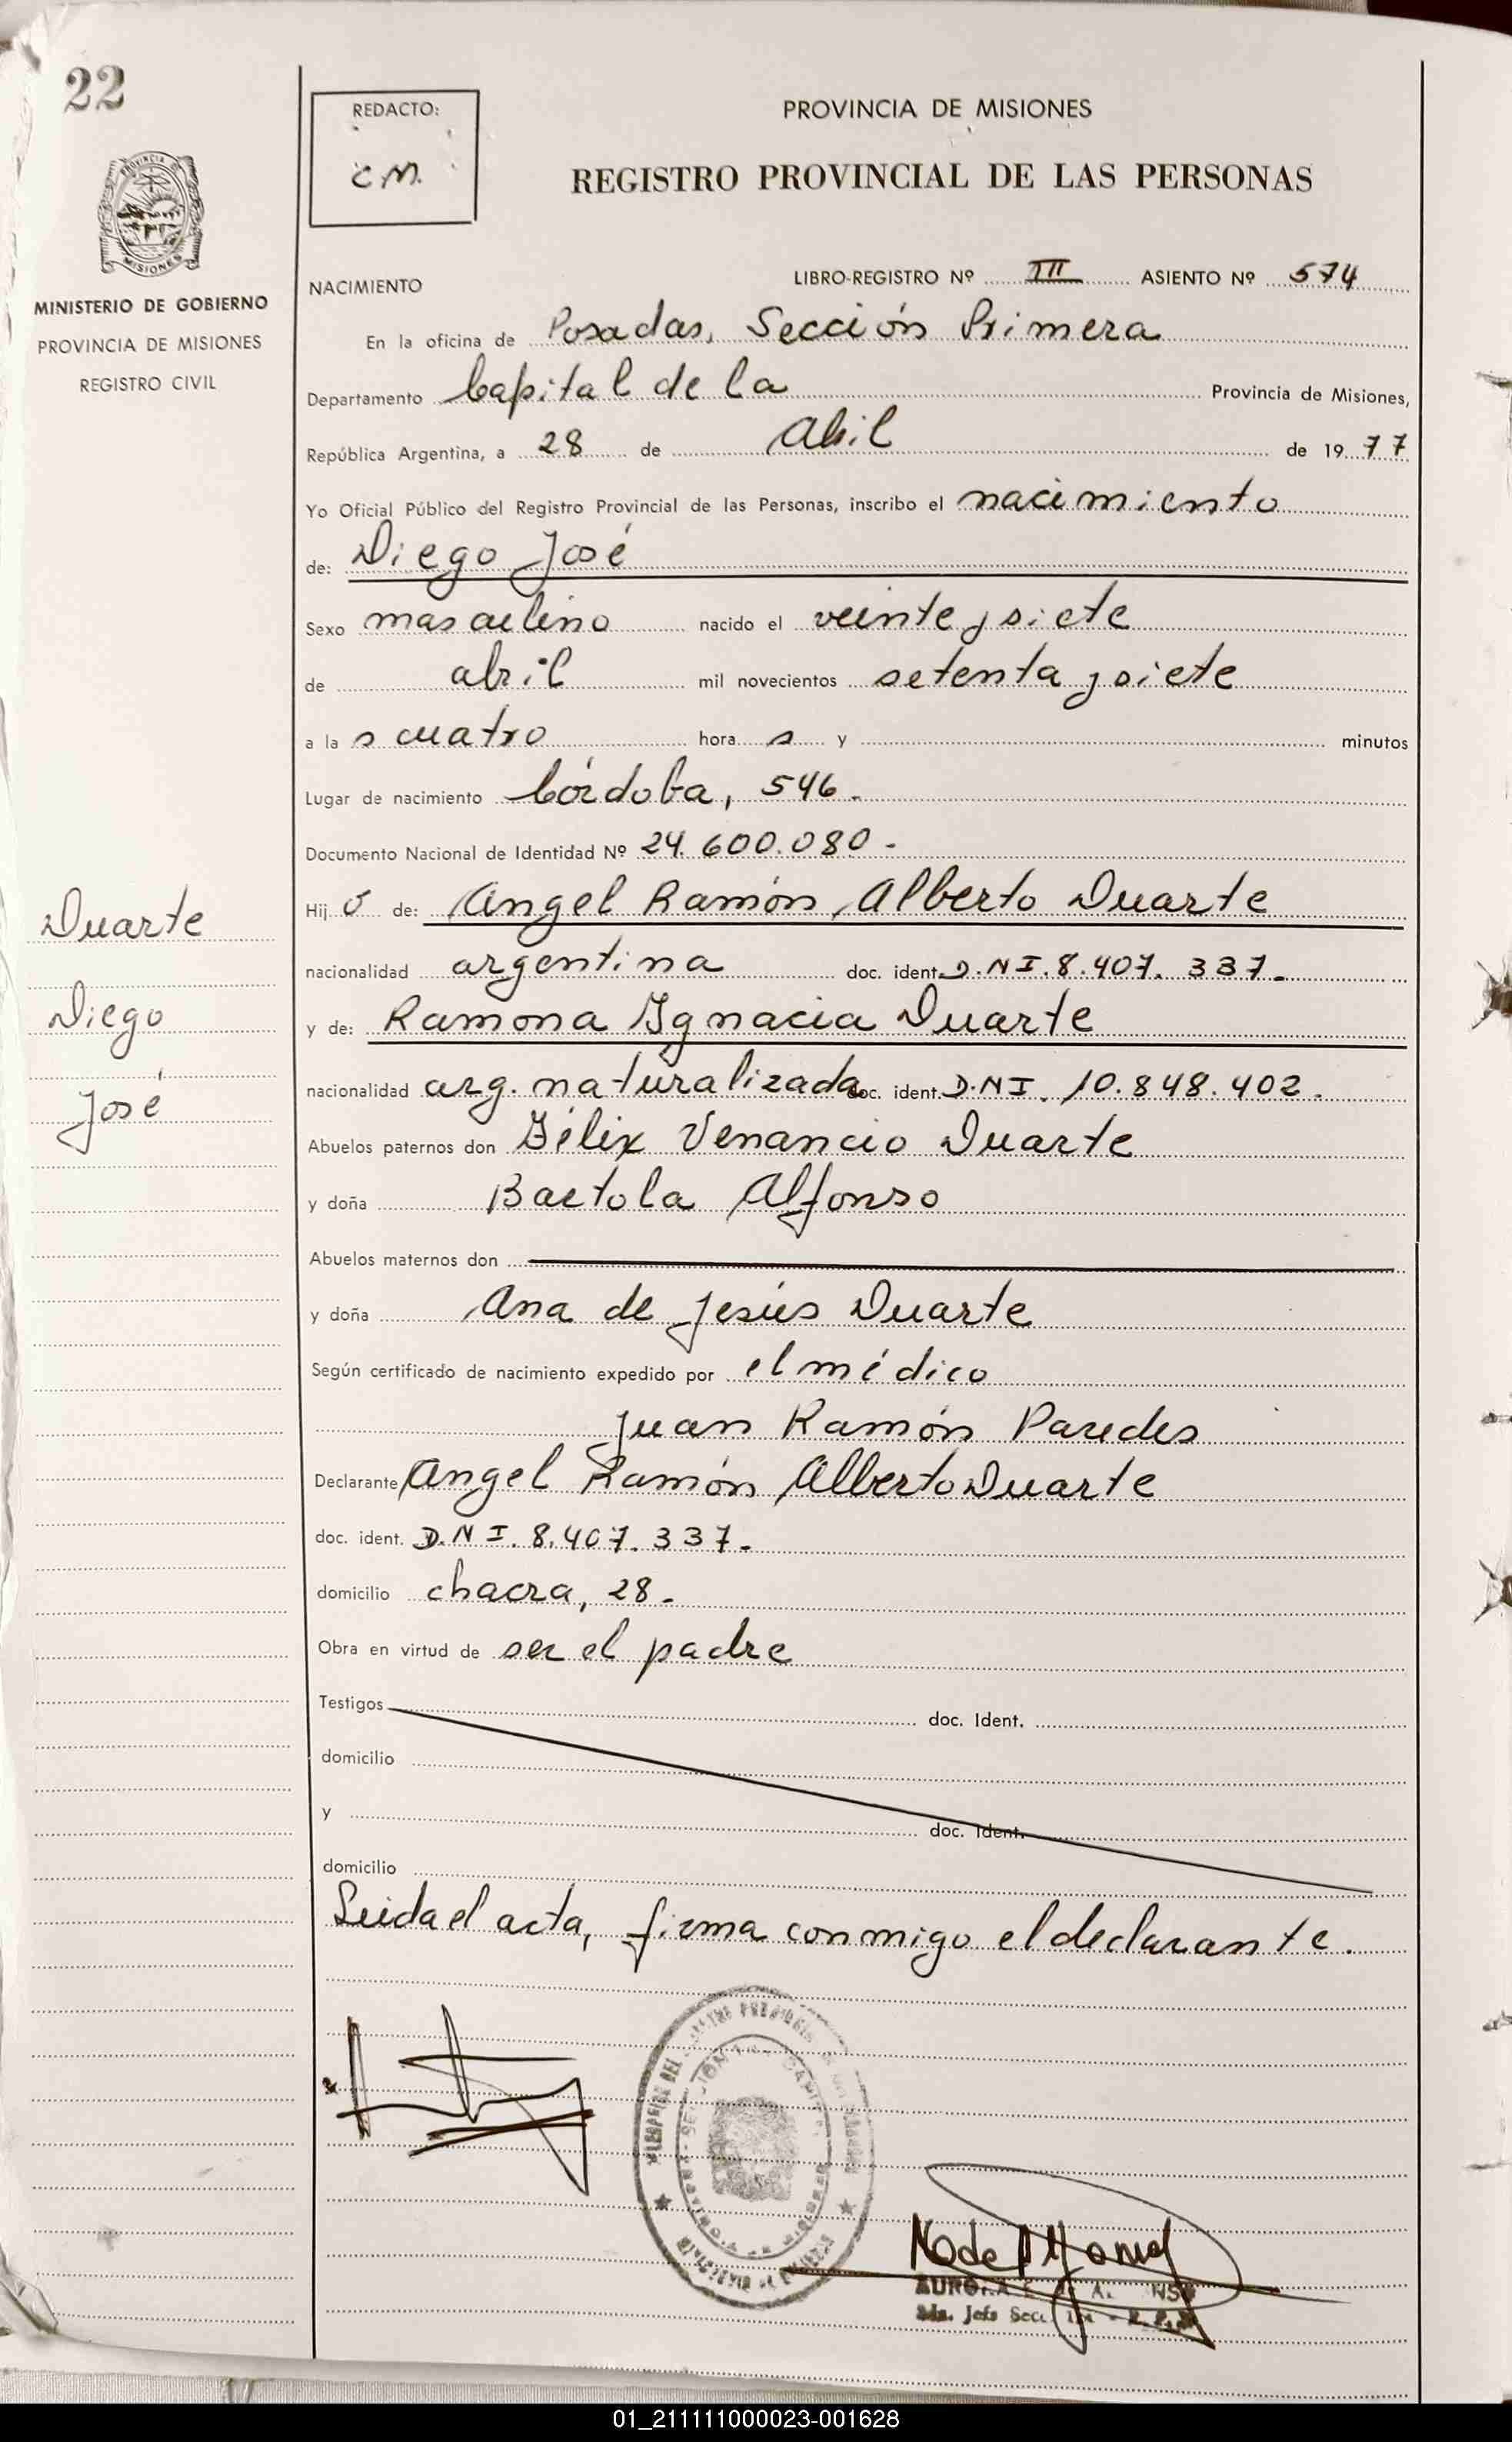 22
REDACTO:
C M.
PROVINCIA DE MISIONES
REGISTRO PROVINCIAL DE LAS PERSONAS
PROVINCIA DE
MISIONES
MINISTERIO DE GOBIERNO
PROVINCIA DE MISIONES
REGISTRO CIVIL
NACIMIENTO
LIBRO-REGISTRO Nº III ASIENTO Nº 574
En la oficina de Posadas, Sección Primera
Departamento Capital de la Provincia de Misiones,
República Argentina, a 28 de Abril de 19 77
Yo Oficial Público del Registro Provincial de las Personas, inscribo el nacimiento
de: Diego José
Sexo masculino nacido el veinte y siete
de abril mil novecientos setenta y siete
a la s cuatro hora s y minutos
Lugar de nacimiento Córdoba, 546.
Documento Nacional de Identidad Nº 24.600.080 -
Hij o de: Angel Ramón Alberto Duarte
nacionalidad argentina doc. ident. D.N I. 8.407.337.
y de: Ramona Ignacia Duarte
nacionalidad arg. naturalizada doc. ident. D.N I. 10.848.402.
Abuelos paternos don Félix Venancio Duarte
y doña Bartola Alfonso
Abuelos maternos don
y doña Ana de Jesús Duarte
Según certificado de nacimiento expedido por el médico
Juan Ramón Paredes
Declarante Angel Ramón Alberto Duarte
doc. ident. D.N I. 8.407.337.
domicilio chacra, 28.
Obra en virtud de ser el padre
Testigos doc. Ident.
domicilio
y doc. Ident.
domicilio
Leida el acta, firma conmigo el declarante.
Duarte
Diego
José
Jefe Secc.
01_211111000023-001628